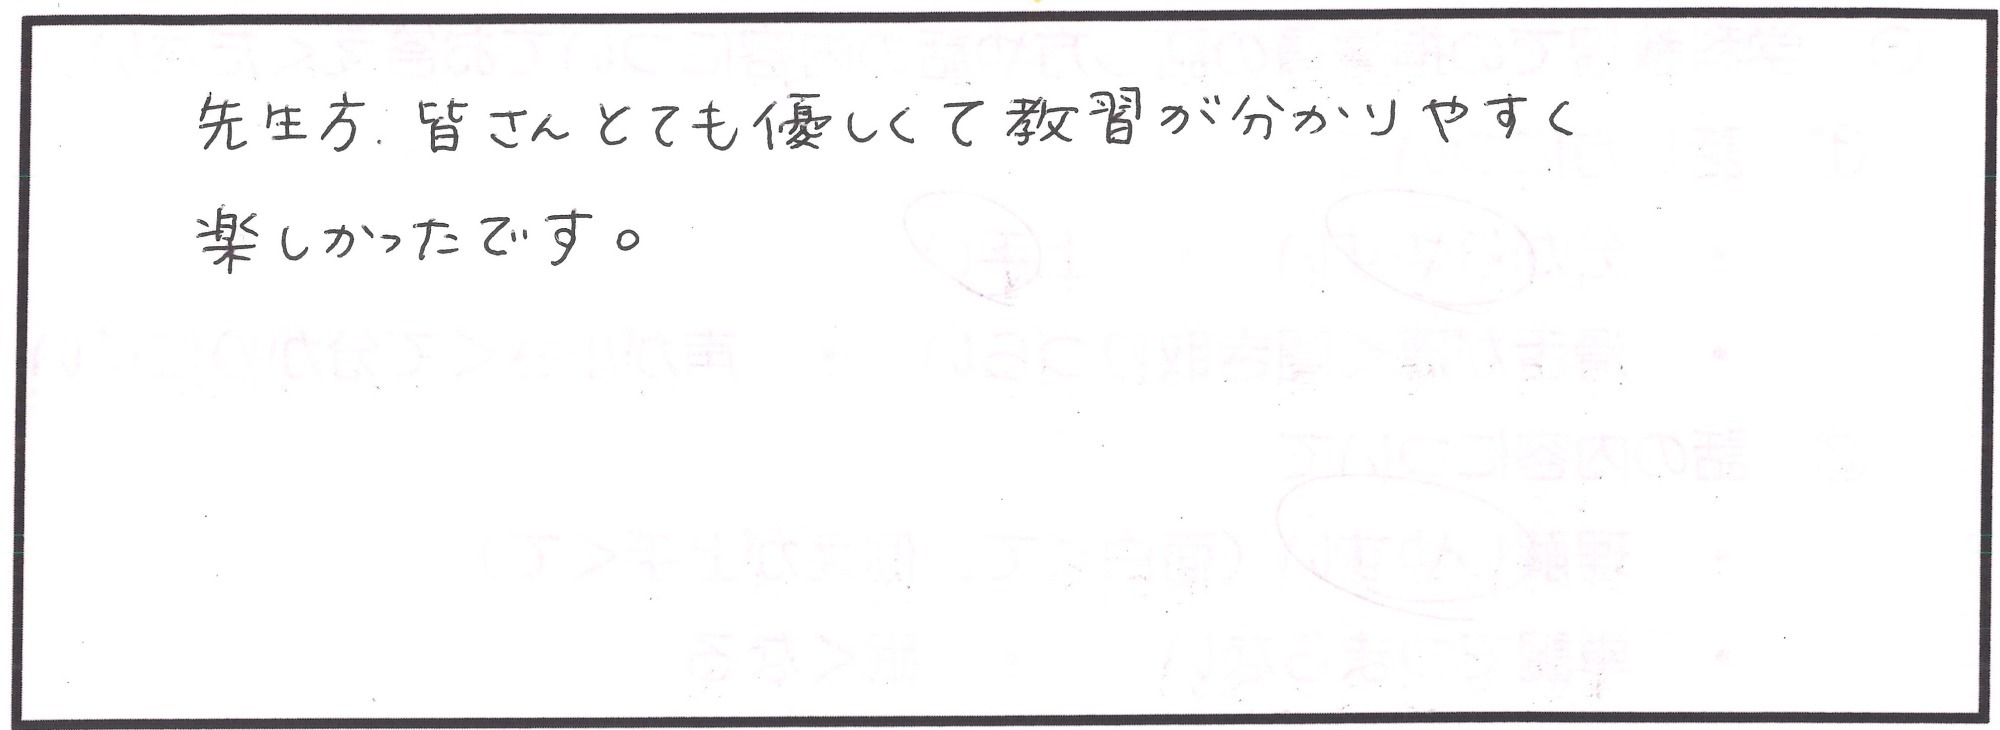 先生方、皆さんとても優しくて教習が分かりやすく
楽しかったです。